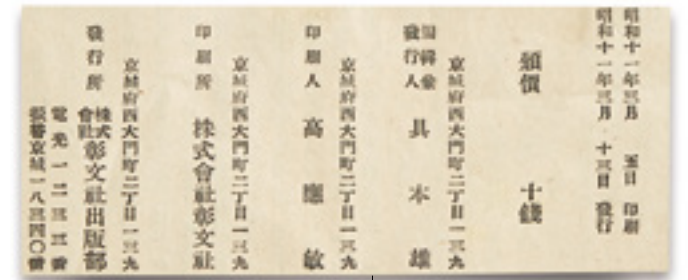 昭和十一年三月 五日 印刷
昭和十一年三月 十三日 發行
頒價 十錢
京城府西大門町二丁目一三九
編輯兼發行人 具本雄
京城府西大門町二丁目一三九
印刷人 高應敏
京城府西大門町二丁目一三九
印刷所 株式會社彰文社
京城府西大門町二丁目一三九
發行所 株式會社彰文社出版部
電光一二三三番
振替京城一八三四〇番